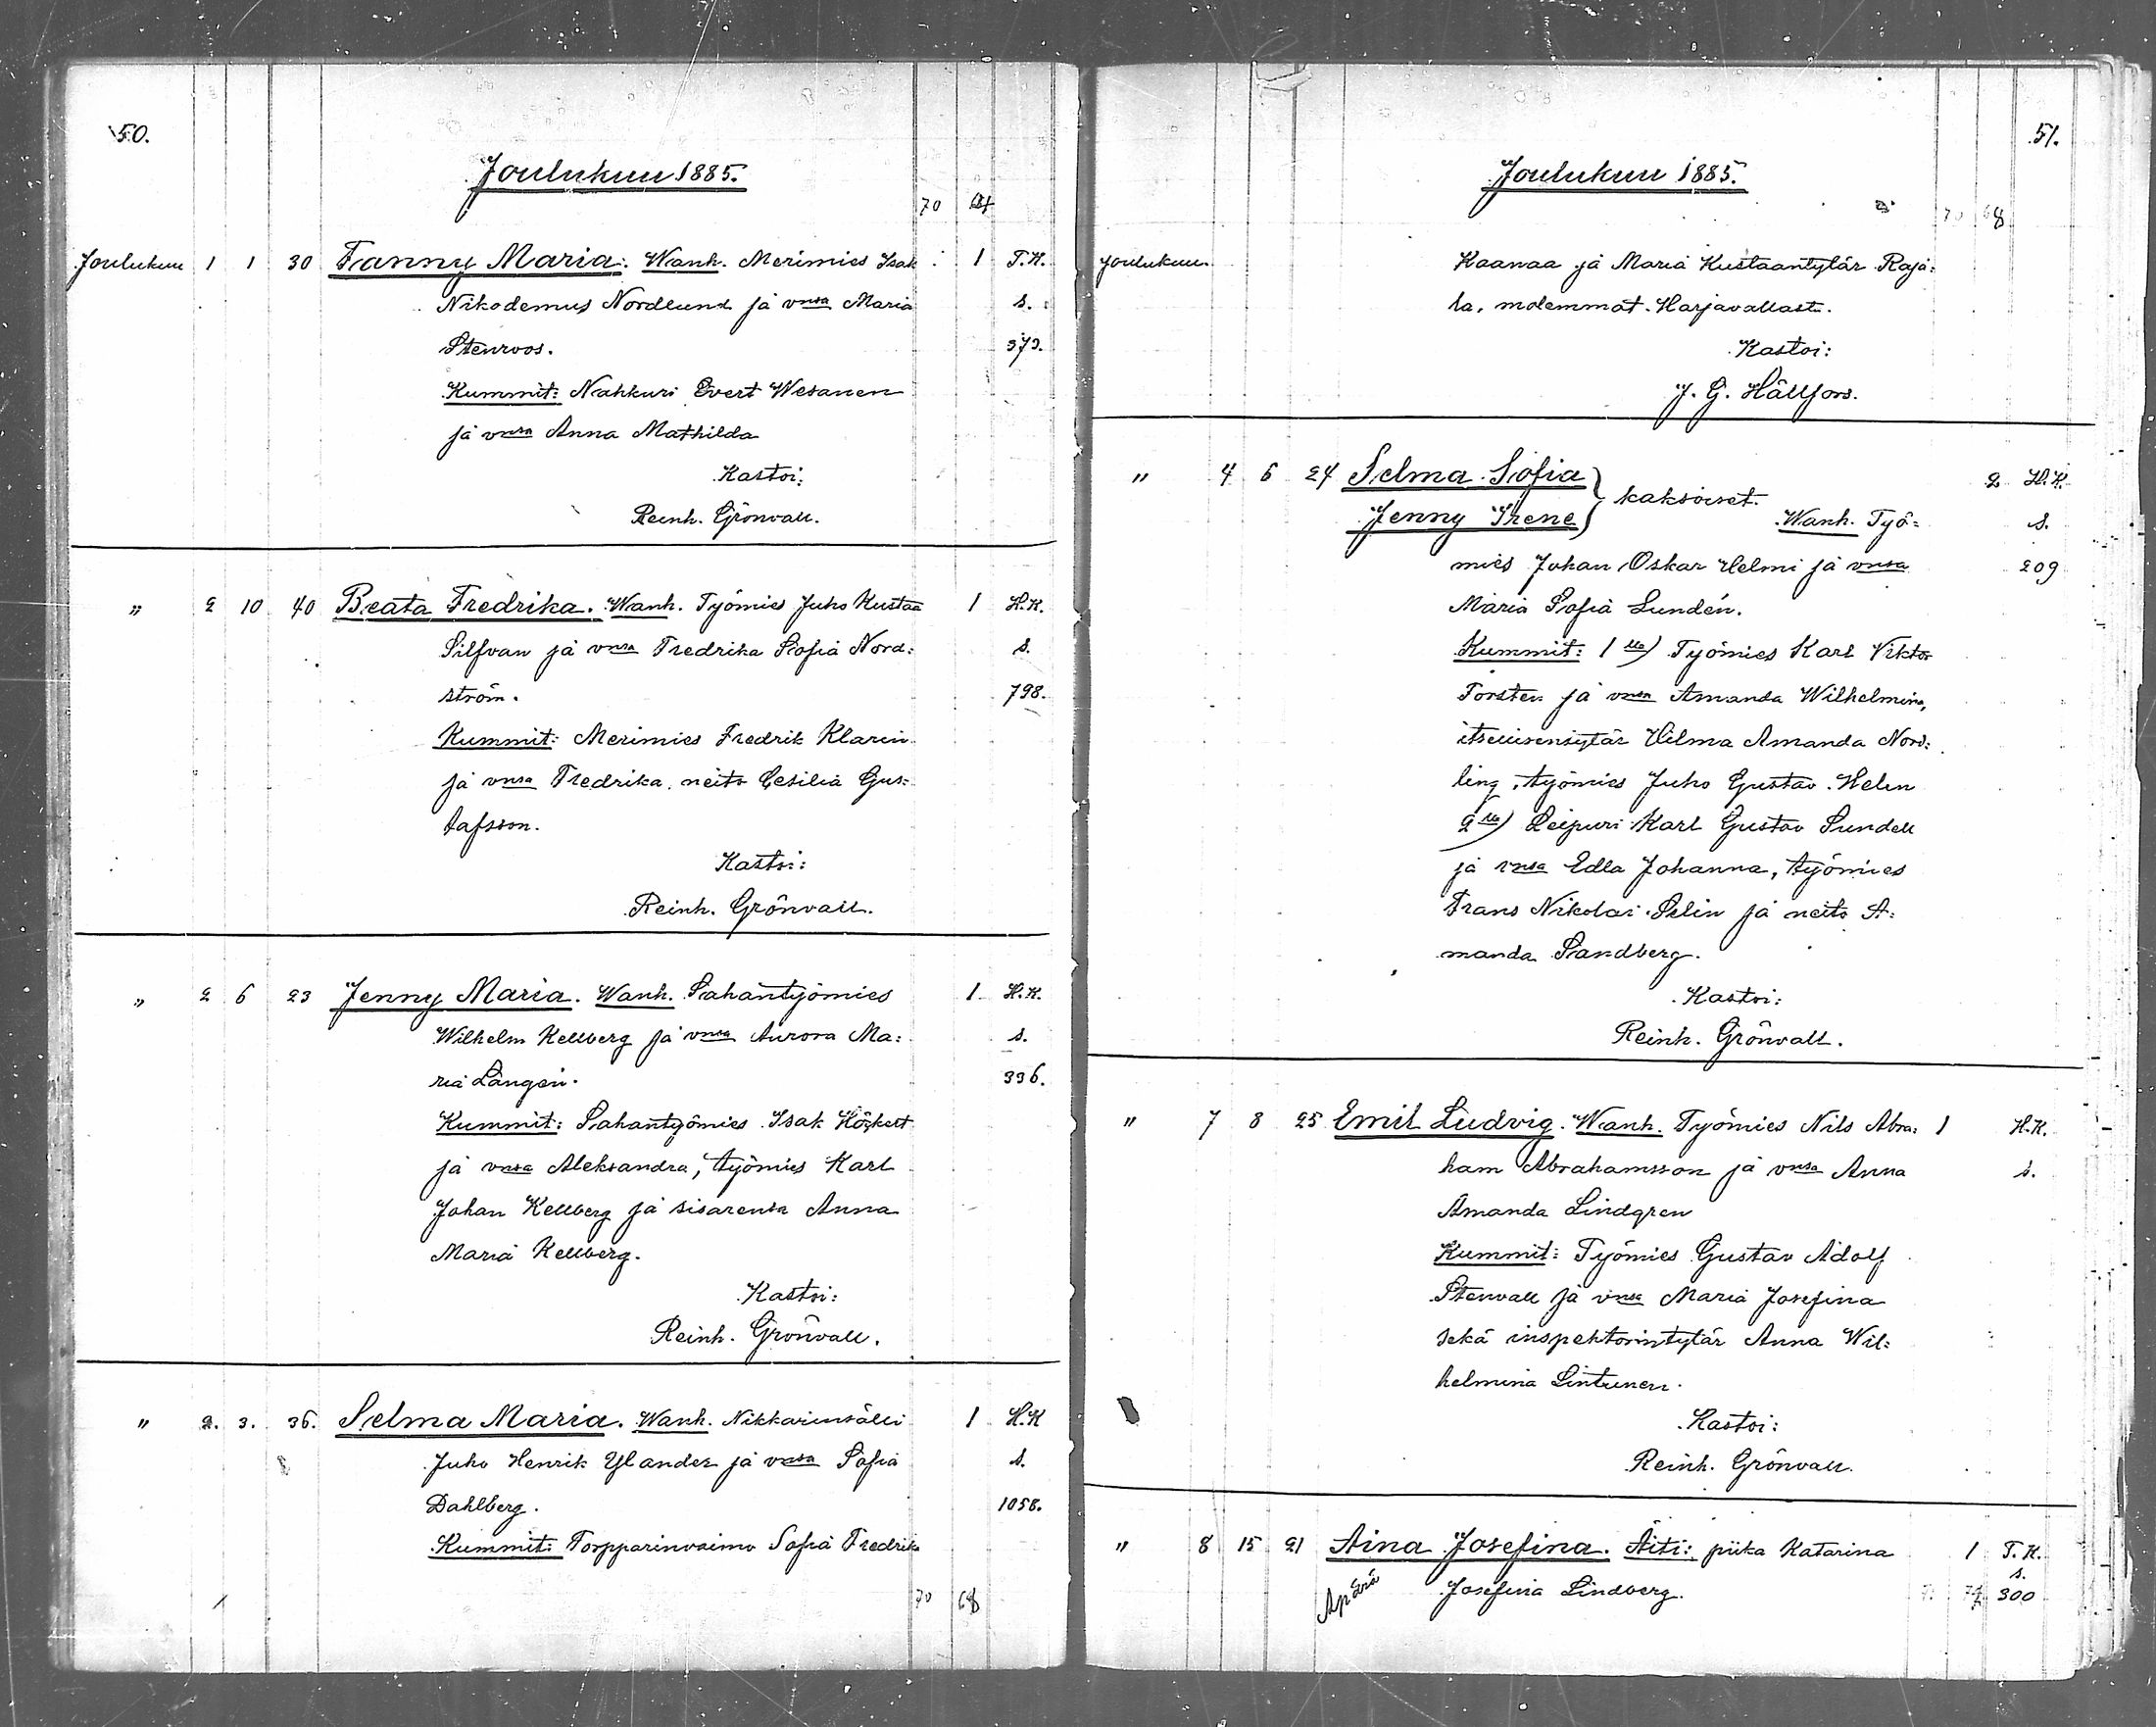 50.
Joulukuu 1885.
70 64
Joulukuu 1 1 30 Fanny Maria. Wanh. Merimies Isak 1 T.K.
Nikodemus Nordlund ja vnsa Maria s.
Stenroos. 373.
Kummit: Nahkuri Evert Wesanen
ja vnsa Anna Mathilda
Kastoi:
Reinh. Grönvall.
" 2 10 40 Beata Fredrika. Wanh. Työmies Juho Kustaa 1 H.K.
Silfvan ja vnsa Fredrika Sofia Nord= s.
ström. 798.
Kummit: Merimies Fredrik Klarin
ja vnsa Fredrika, neito Cesilia Gus=
tafsson.
Kastoi:
Reinh. Grönvall.
" 2 6 23 Jenny Maria. Wanh. Sahantyömies 1 H.K.
Wilhelm Kellberg ja vnsa Aurora Ma= s.
ria Långén. 336.
Kummit: Sahantyömies Isak Högkert
ja vnsa Aleksandra, työmies Karl
Johan Kellberg ja sisarensa Anna
Maria Kellberg.
Kastoi:
Reinh. Grönvall.
" 2. 3. 36. Selma Maria. Wanh. Nikkarinsälli 1 H.K
Juho Henrik Ylander ja vnsa Sofia s.
Dahlberg. 1058.
Kummit: Torpparinvaimo Sofia Fredrik
70 68
51.
Joulukuu 1885.
70 68
Joulukuu. Kaanaa ja Maria Kustaantytär Raja=
la, molemmat Harjavallast.
Kastoi:
J. G. Hällfors.
" 4 6 24 Selma Sofia } kaksoiset. 2 H.K.
Jenny Irene } Wanh. Työ= s.
mies Johan Oskar Helmi ja vnsa 209
Maria Sofia Lundén.
Kummit: 1 lla) Työmies Karl Viktor
Torsten ja vnsa Amanda Wilhelmina,
itsellisentytär Hilma Amanda Nord=
ling, työmies Juho Gustav Helen
2 lla) Leipuri Karl Gustav Sundell
ja vnsa Edla Johanna, työmies
Frans Nikolai Selin ja neito A=
manda Sandberg.
Kastoi:
Reinh. Grönvall.
" 7 8 25 Emil Ludvig. Wanh. Työmies Nils Abra= 1 H.K.
ham Abrahamsson ja vnsa Anna s.
Amanda Lindgren
Kummit: Työmies Gustav Adolf
Stenvall ja vnsa Maria Josefina
sekä inspehtorintytär Anna Wil=
helmina Lintunen.
Kastoi:
Reinh. Grönvall.
" 8 15 21 Aina Josefina. Äiti: piika Katarina 1 T.K.
s.
Äpärä Josefina Lindberg. 300